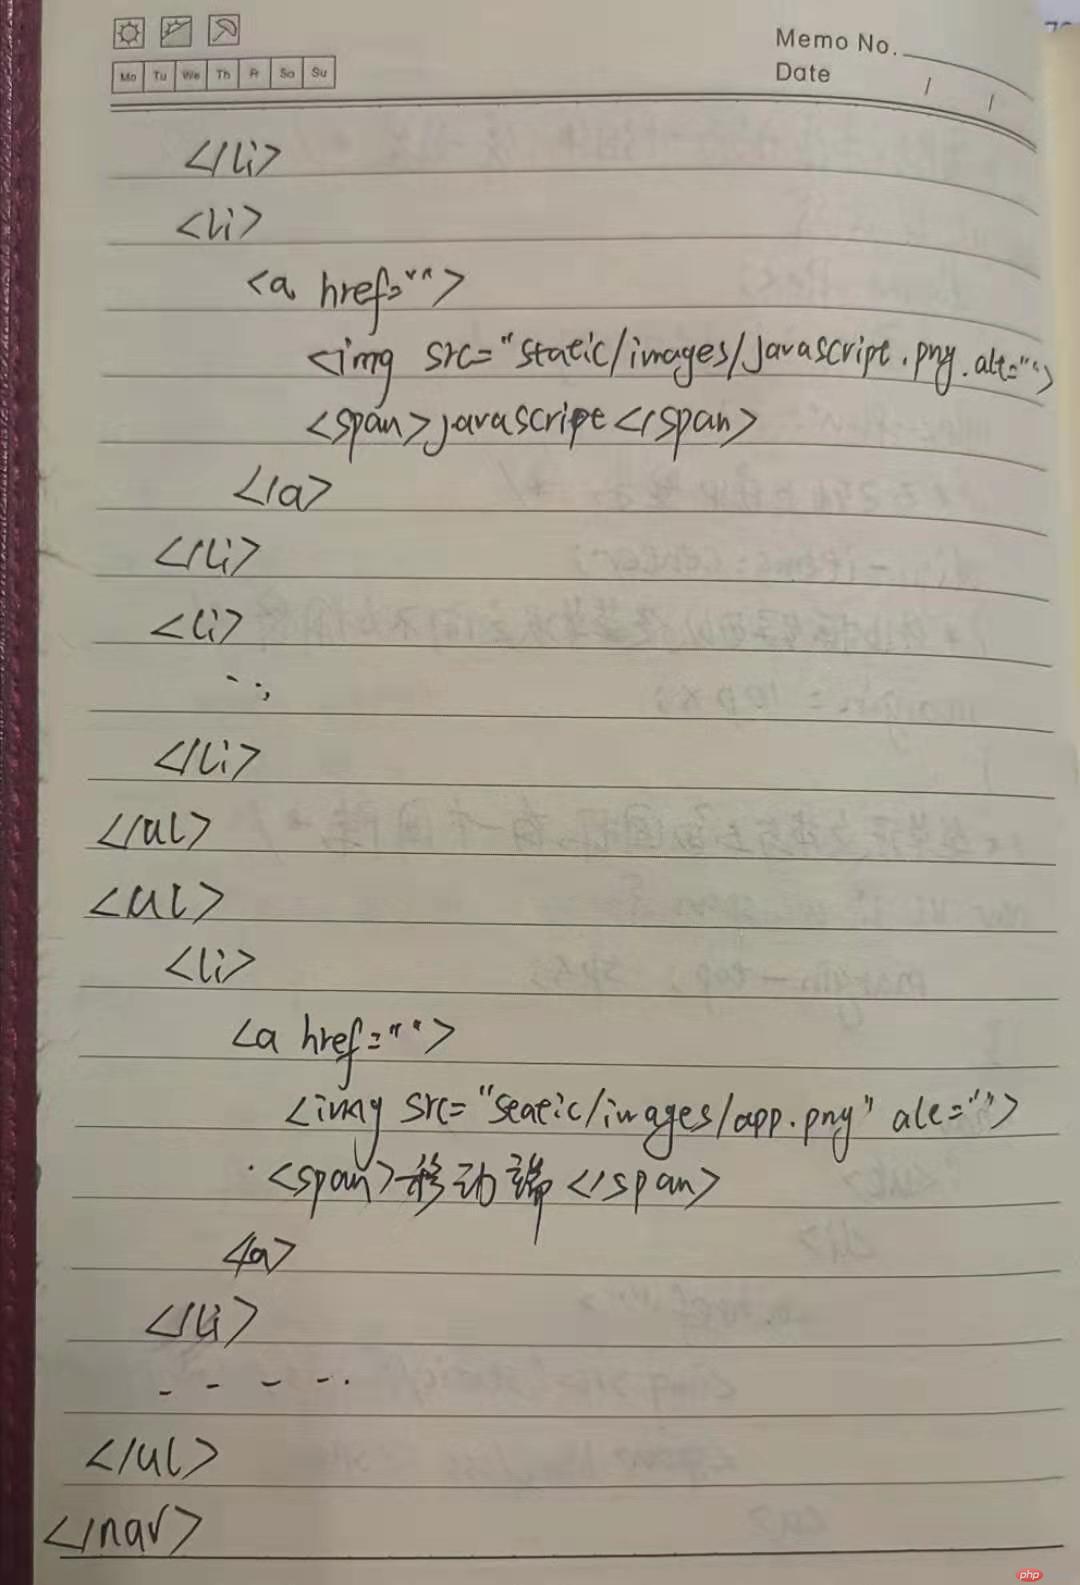 Memo No.
Mo Tu We Th Fr Sa Su
Date / /
</li>
<li>
<a href="">
<img src="static/images/javascript.png.alt="">
<span>javascript</span>
</a>
</li>
<li>
...
</li>
</ul>
<ul>
<li>
<a href="">
<img src="static/images/app.png" alt="">
<span>移动端</span>
</a>
</li>
- - - - .
</ul>
</nav>
php